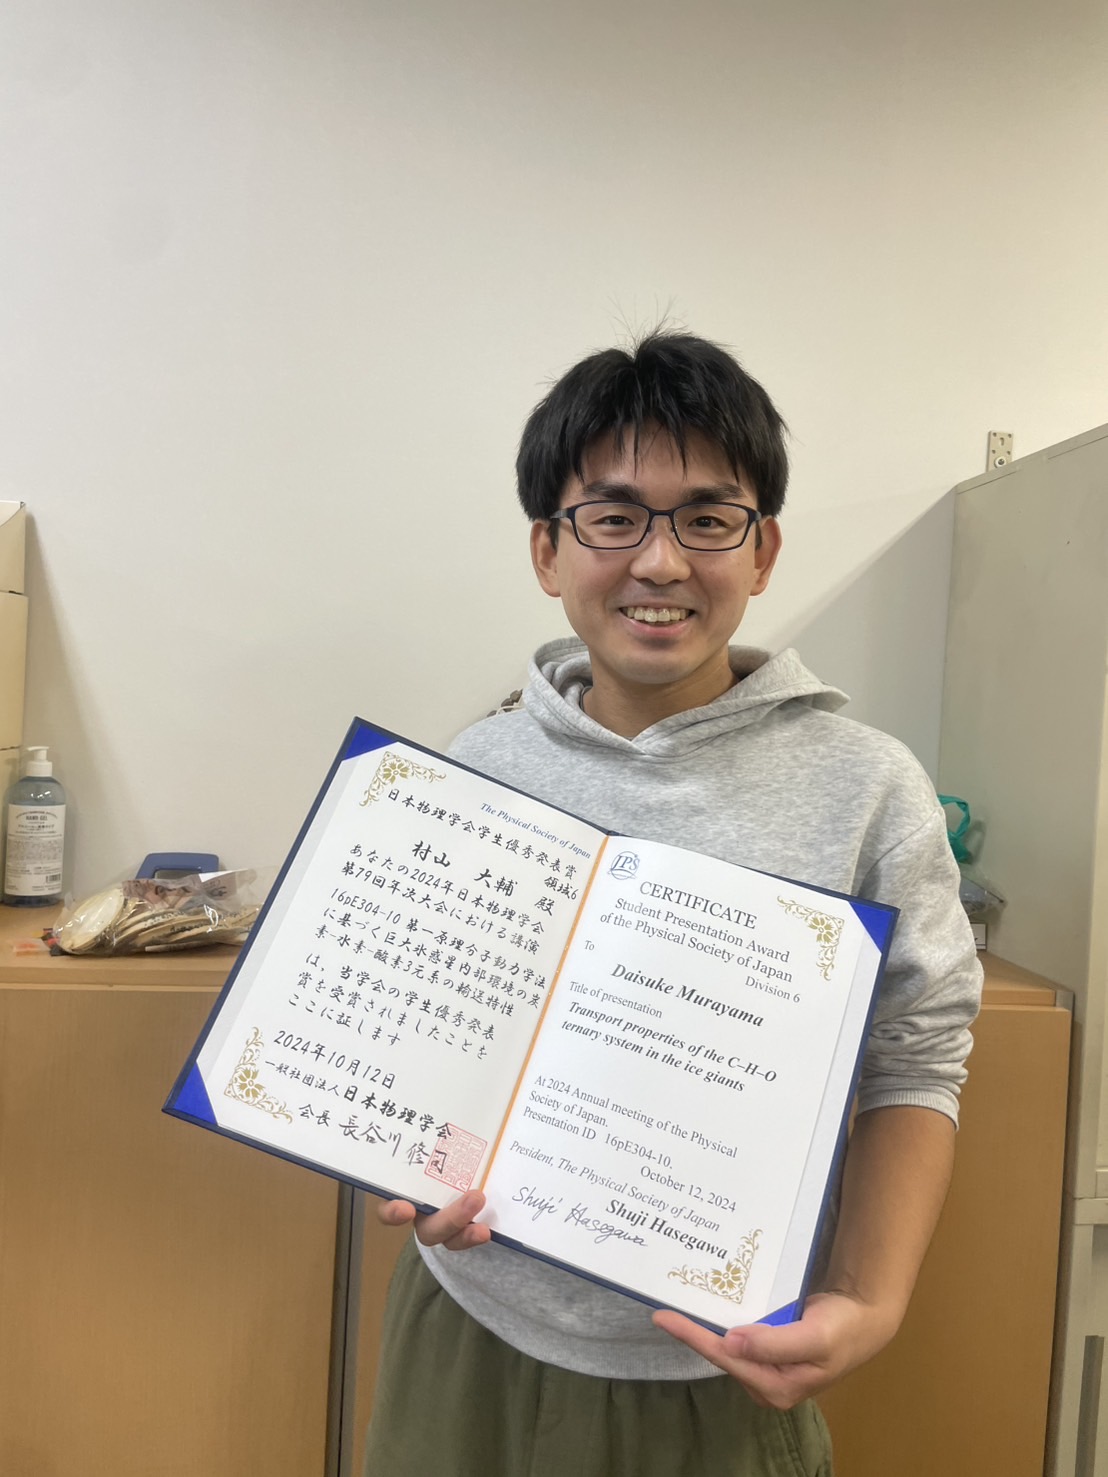 The Physical Society of Japan
日本物理学会学生優秀発表賞
領域6
村山 大輔 殿
あなたの2024年日本物理学会
第79回年次大会における講演
16pE304-10 第一原理分子動力学法
に基づく巨大氷惑星内部環境の炭
素-水素-酸素3元系の輸送特性
は、当学会の学生優秀発表
賞を受賞されましたことを
ここに証します
2024年10月12日
一般社団法人日本物理学会
会長 長谷川 修司
JPS
CERTIFICATE
Student Presentation Award
of the Physical Society of Japan
Division 6
To
Daisuke Murayama
Title of presentation
Transport properties of the C–H–O
ternary system in the ice giants
At 2024 Annual meeting of the Physical
Society of Japan.
Presentation ID 16pE304-10.
October 12, 2024
President, The Physical Society of Japan
Shuji Hasegawa
Shuji Hasegawa
HAND GEL